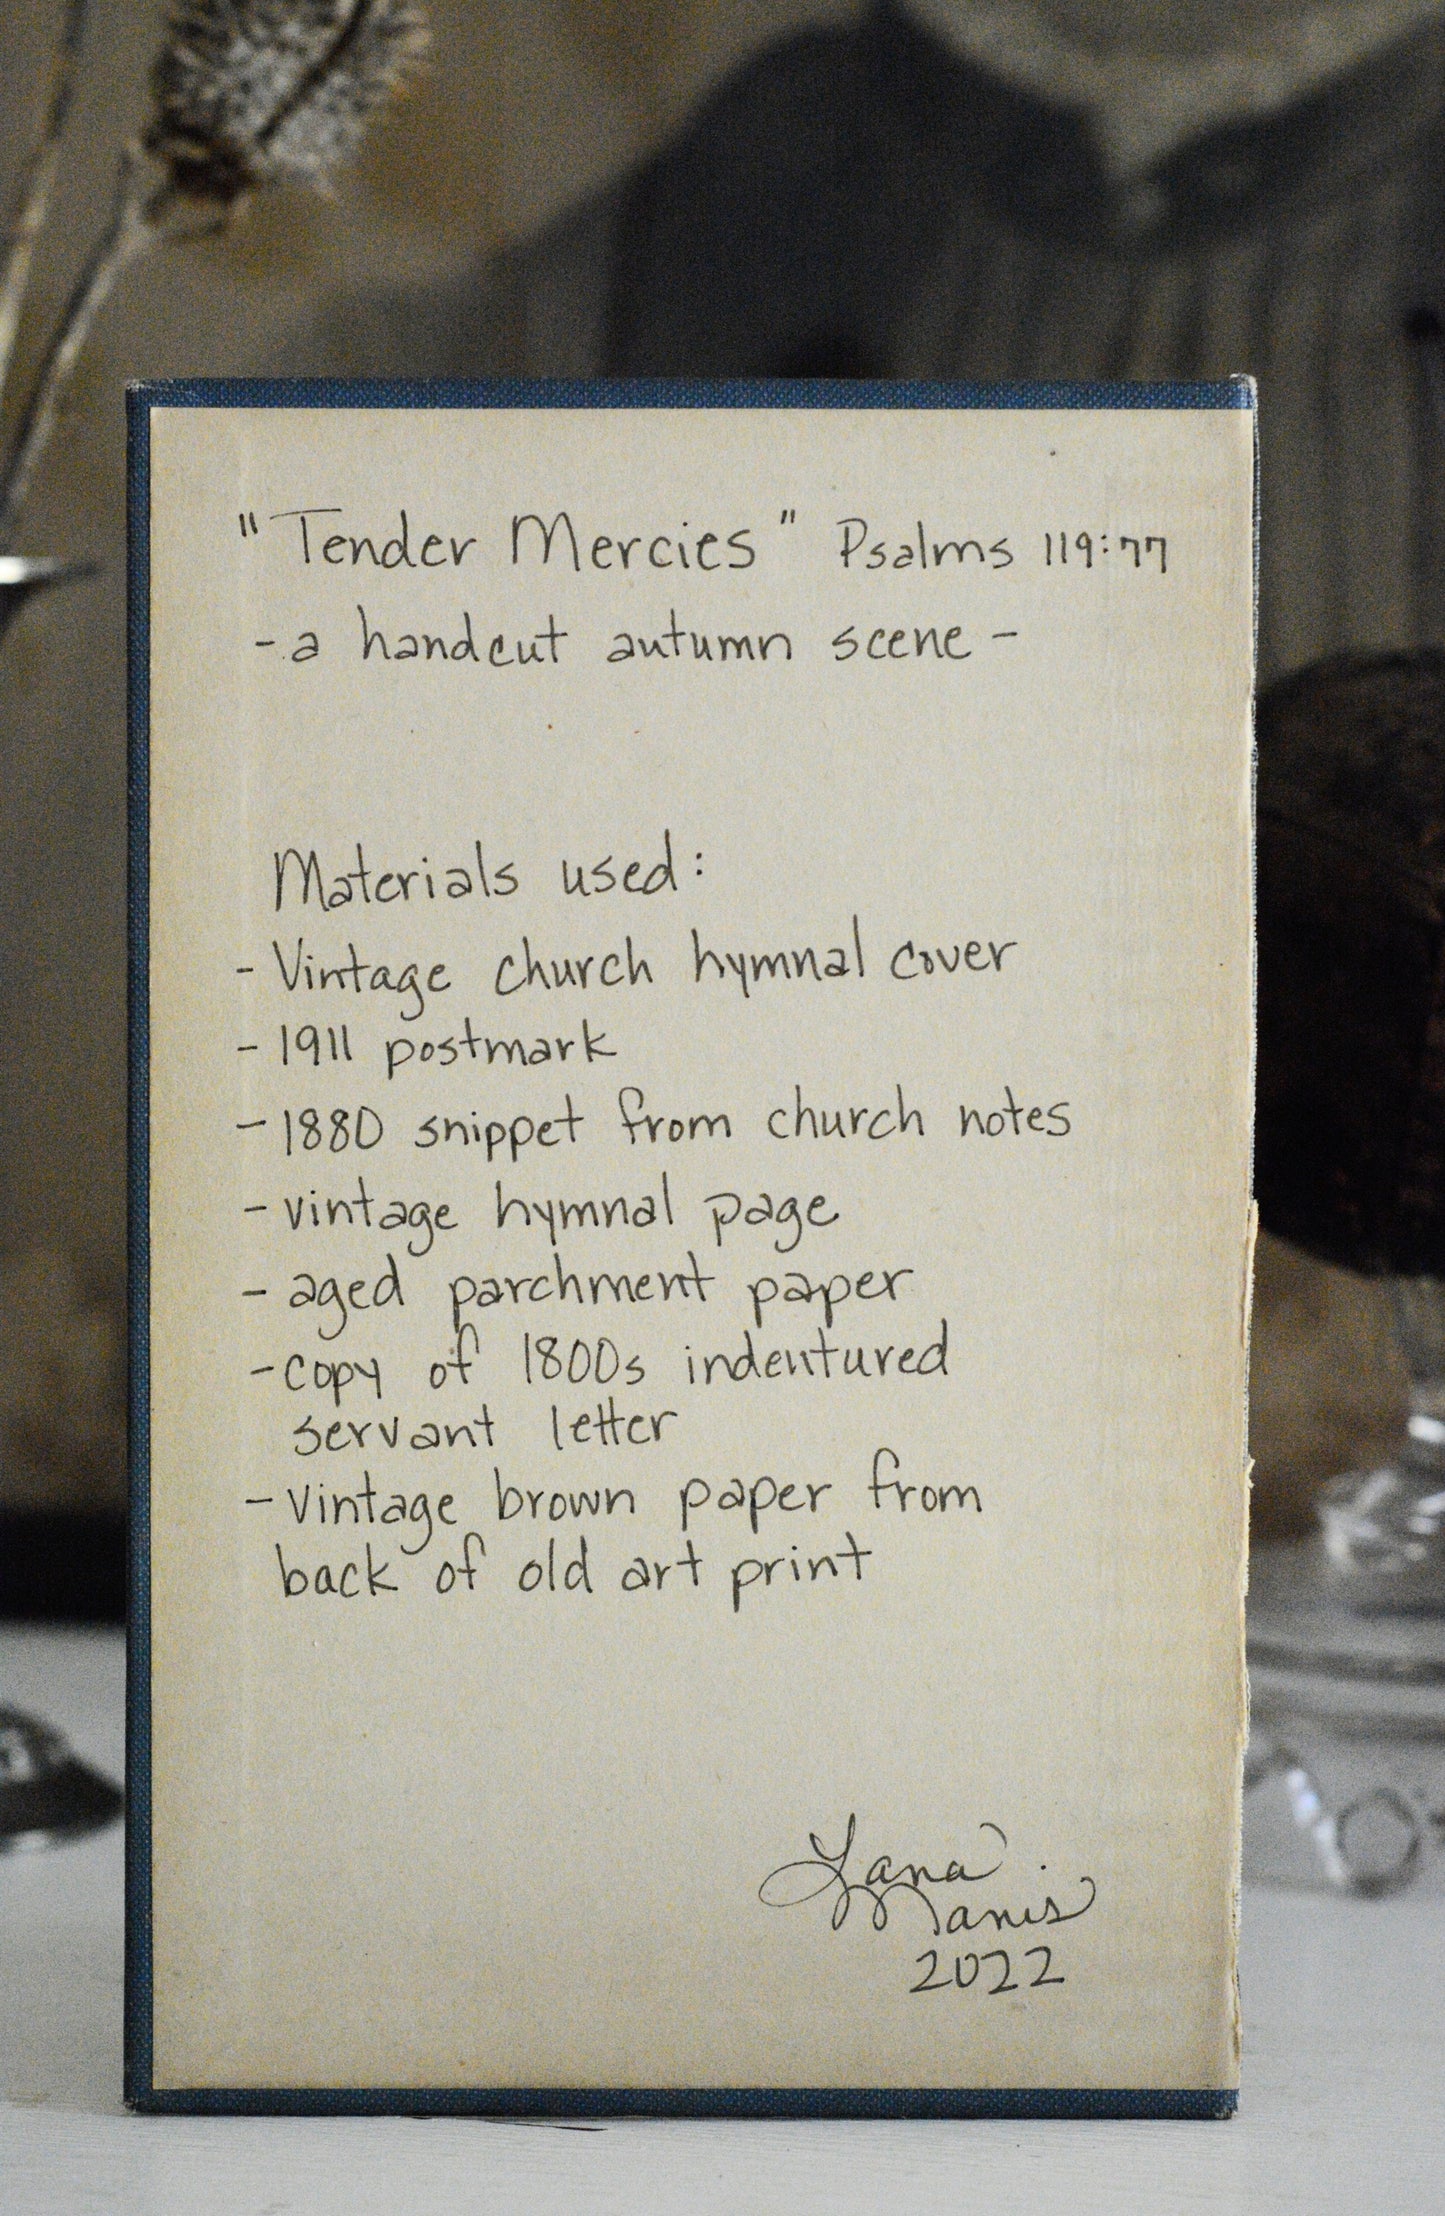 "Tender Mercies" Psalms 119:77
- a handcut autumn scene -
Materials used:
- Vintage church hymnal cover
- 1911 postmark
- 1880 snippet from church notes
- vintage hymnal page
- aged parchment paper
- copy of 1800s indentured
servant letter
- vintage brown paper from
back of old art print
Lana
Manis
2022